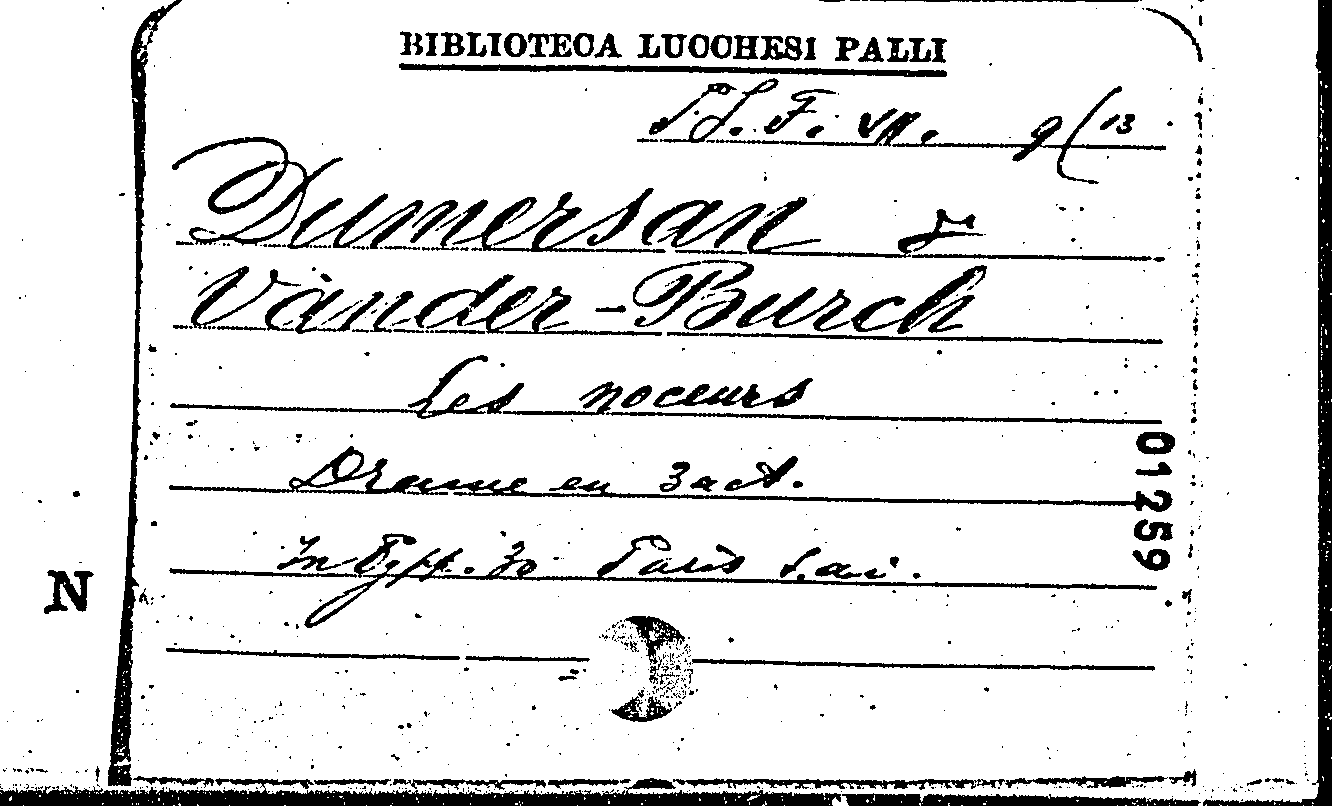 BIBLIOTECA LUCCHESI PALLI
F. VII. 9(13
Dumersan &
Vander-Burch
Les noceurs
Drame en 3 act.
In Paris s.
01259
N